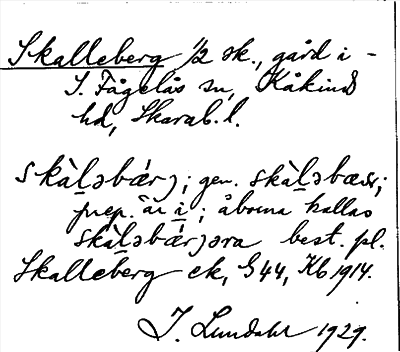 Skalleberg 1/2 sk., gård i -
S. Fågelås sn, Kåkinds
hd, Skarab. l.
skàḷəbær̀j; gen. skàḷəbærs;
prep. är i; åborna kallas
skàḷəbær̀jəra best. pl.
Skalleberg ek, G 44, Kb 1914.
I. Lundahl 1929.